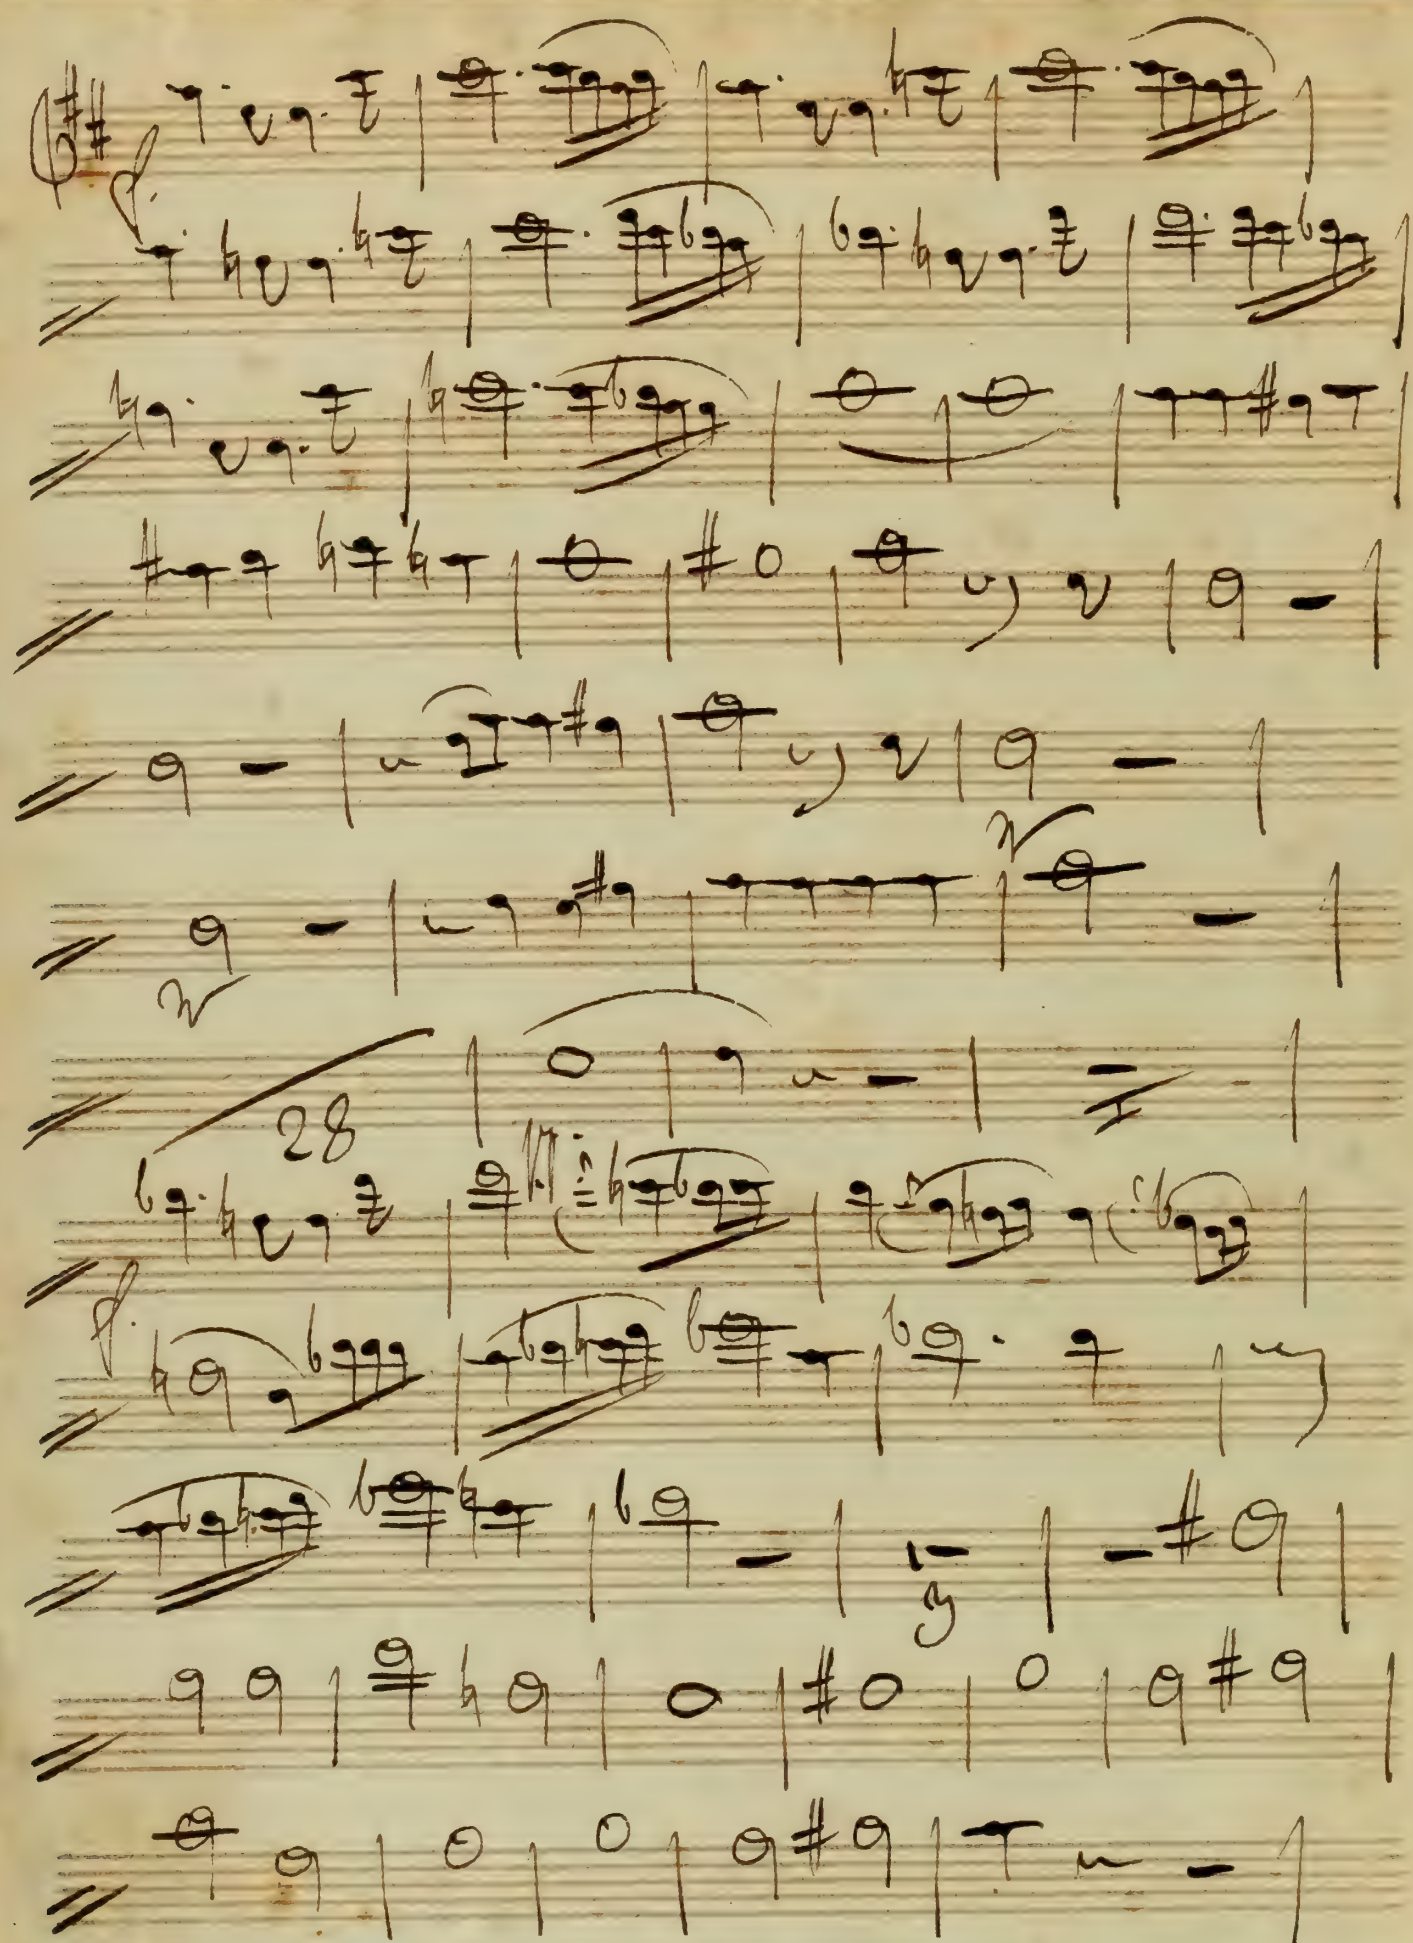 f.
28
f.
3